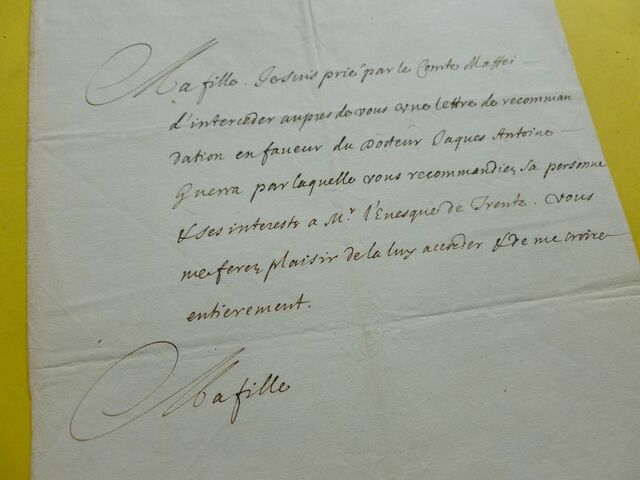 Ma fille. Je suis prié par le Comte Maffei
d'interceder aupres de vous une lettre de recomman
dation en faveur du Docteur Jaques Antoine
Guerra par laquelle vous recommandiez sa personne
& ses interests a Mr. l'Evesque de Trente. Vous
me ferez plaisir de la luy accorder & de me croire
entierement.
Ma fille